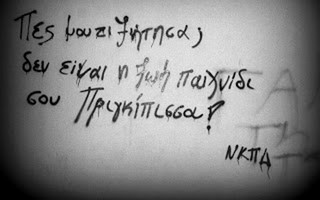 Πες μου τι ζήτησα;
δεν είναι η ζωή παιχνίδι
σου Πριγκίπισσα!
ΝΚΠΔ